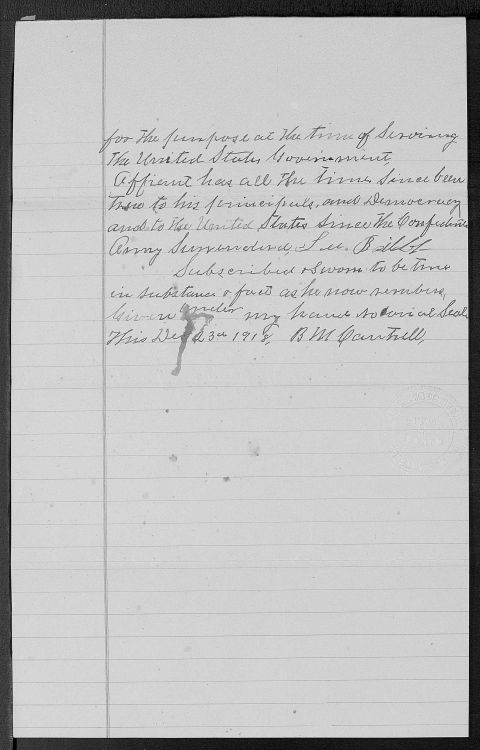 for the purpose at the time of Serving
the United States Government,
Affient has all the time since been
true to his principals, and Democracy
and to the United States Since the Confederate
Army Surrendered, Lee.
Subscribed & Sworn to be true
in substance & fact as he now rembers,
Given under my hand & Seal
This Dec 23rd 1918, B M Cantrell,